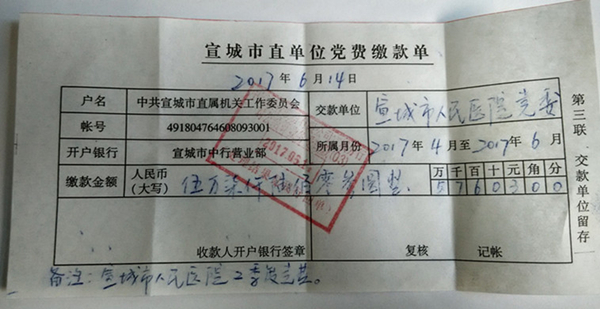 宣城市直单位党费缴款单
2017年6月14日
户名 中共宣城市直属机关工作委员会 交款单位 宣城市人民医院党委
帐号 491804764608093001
开户银行 宣城市中行营业部 所属月份 2017年4月至2017年6月
缴款金额 人民币(大写) 伍万柒仟陆佰零叁圆整 万千百十元角分
5760300
收款人开户银行签章 复核 记帐
备注:宣城市人民医院2季度党费。
第三联 交款单位留存